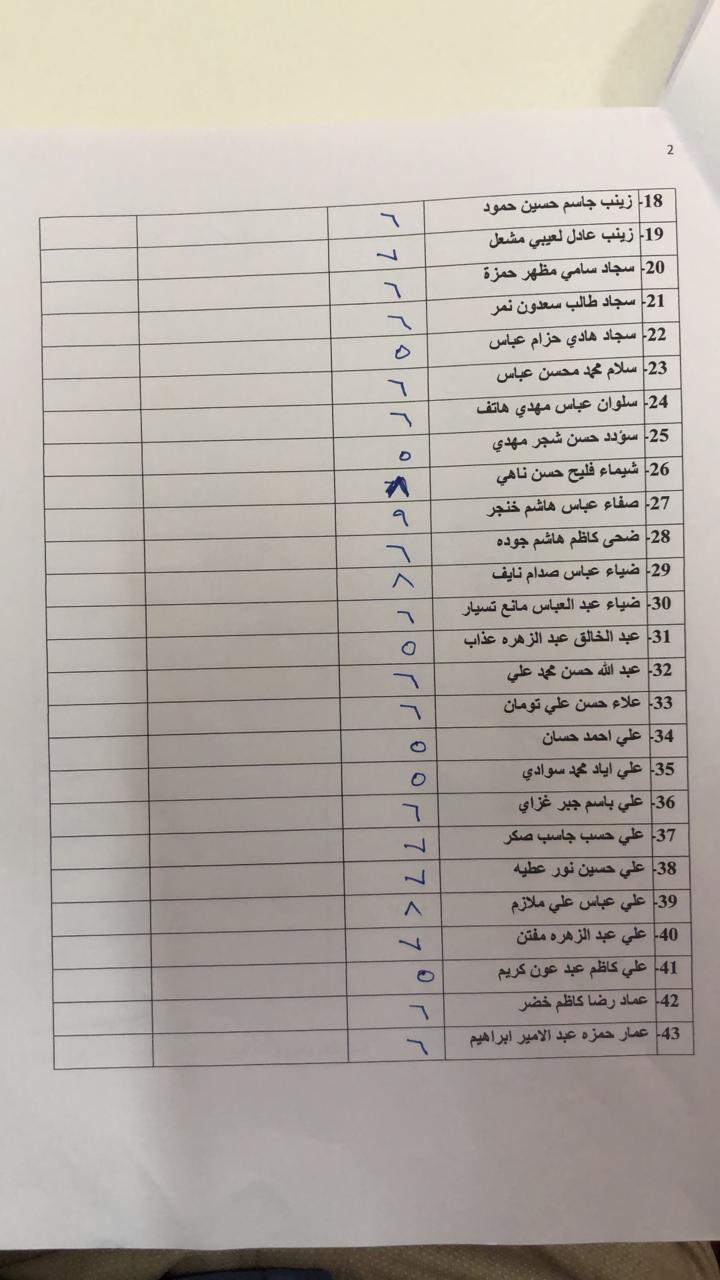 2
18- زينب جاسم حسين حمود ٦
19- زينب عادل لعيبي مشعل ٧
20- سجاد سامي مظهر حمزة ٦
21- سجاد طالب سعدون نمر ٦
22- سجاد هادي حزام عباس ٥
23- سلام محمد محسن عباس ٦
24- سلوان عباس مهدي هاتف ٦
25- سؤدد حسن شجر مهدي ٥
26- شيماء فليح حسن ناهي
27- صفاء عباس هاشم خنجر ٩
28- ضحى كاظم هاشم جوده ٦
29- ضياء عباس صدام نايف ٨
30- ضياء عبد العباس مانع تسيار ٦
31- عبد الخالق عبد الزهره عذاب ٥
32- عبد الله حسن محمد علي ٦
33- علاء حسن علي تومان ٦
34- علي احمد حسان ٥
35- علي اياد محمد سوادي ٥
36- علي باسم جبر غزاي ٦
37- علي حسب جاسب صكر ٧
38- علي حسين نور عطيه ٧
39- علي عباس علي ملازم ٨
40- علي عبد الزهره مفتن ٧
41- علي كاظم عبد عون كريم ٥
42- عماد رضا كاظم خضر ٦
43- عمار حمزه عبد الامير ابراهيم ٦